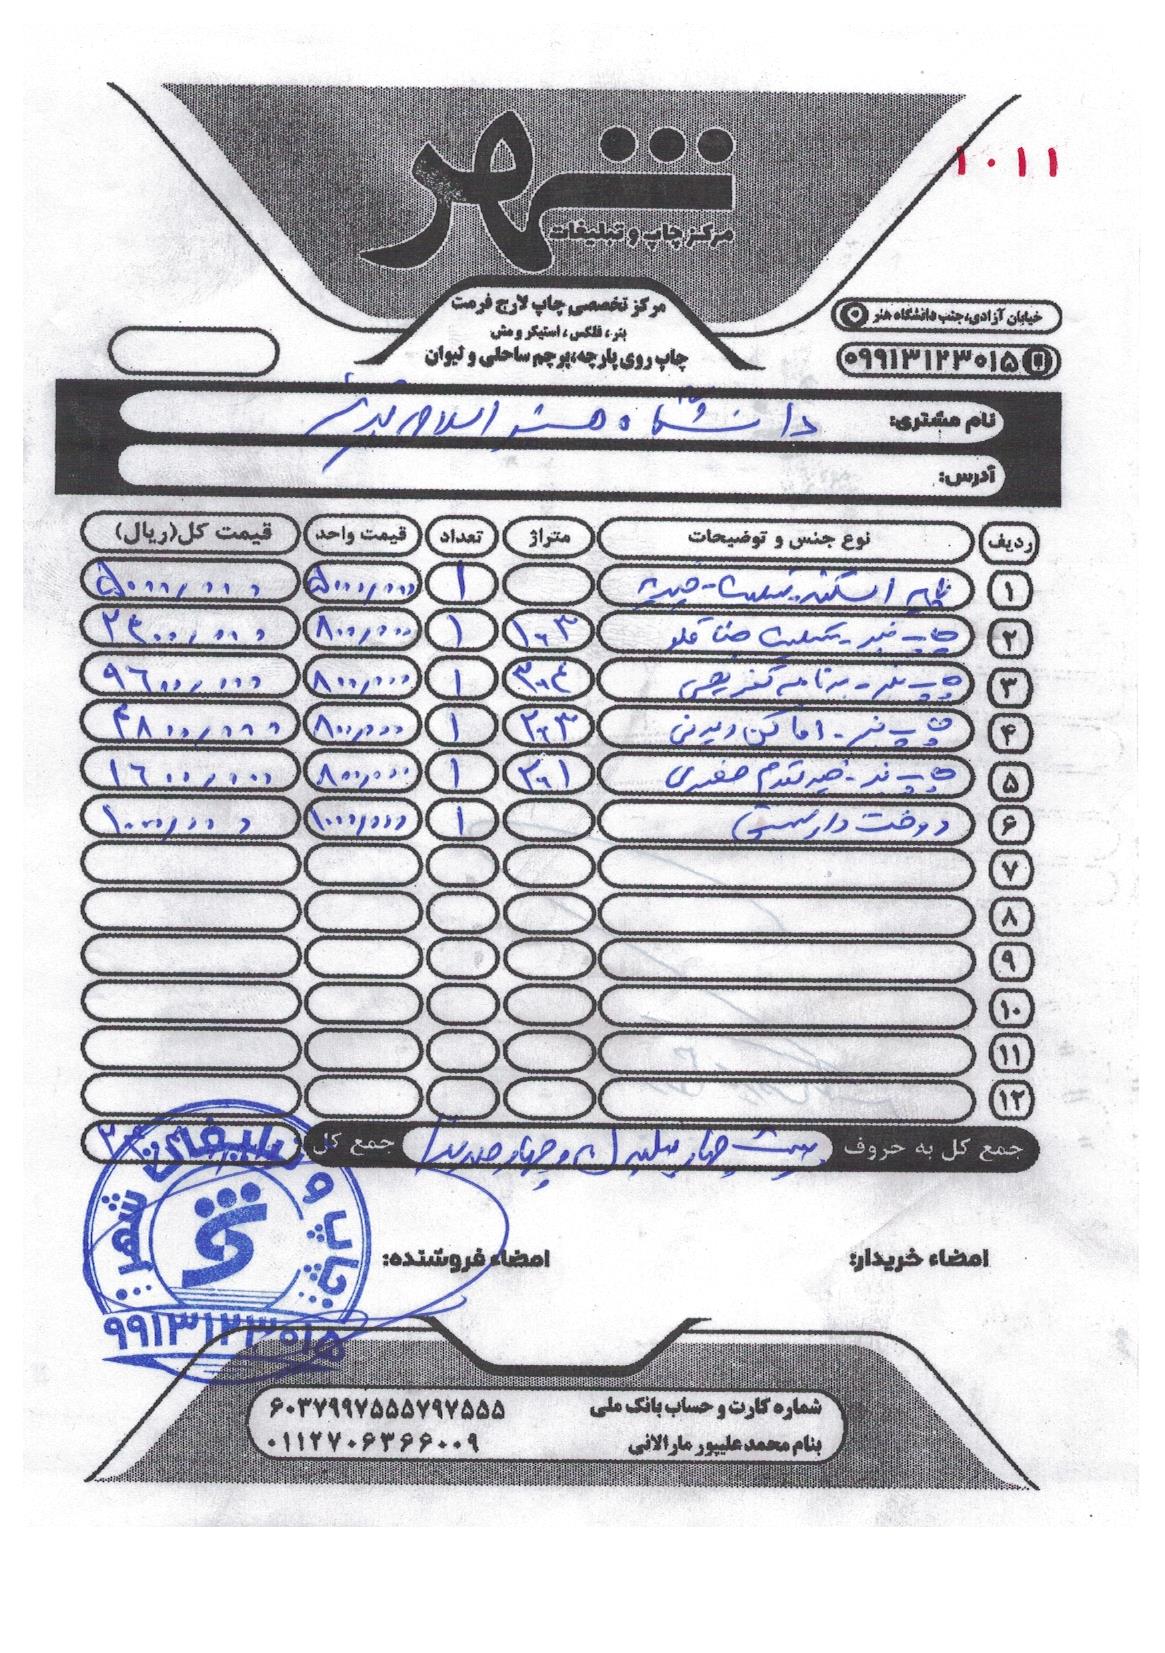 ۱۰۱۱
شهر
مرکز چاپ و تبلیغات
مرکز تخصصی چاپ لارج فرمت
بنر، فلکس، استیکر و مش
چاپ روی پارچه،پرچم ساحلی و لیوان
خیابان آزادی،جنب دانشگاه هنر
۰۹۹۱۳۱۲۳۰۱۵
نام مشتری: دانشگاه هنر اسلامی تبریز
آدرس:
ردیف نوع جنس و توضیحات متراژ تعداد قیمت واحد قیمت کل(ریال)
۱ چاپ تسلیت ۱ ۵۰۰۰/۰۰۰ ۵۰۰۰/۰۰۰
۲ چاپ بنر - تسلیت ۱*۳ ۱ ۸۰۰/۰۰۰ ۲۴۰۰/۰۰۰
۳ چاپ بنر - برنامه تفریحی ۳*۴ ۱ ۸۰۰/۰۰۰ ۹۶۰۰/۰۰۰
۴ چاپ بنر - اماکن دیدنی ۲*۳ ۱ ۸۰۰/۰۰۰ ۴۸۰۰/۰۰۰
۵ چاپ بنر - خیر مقدم ۲*۱ ۱ ۸۰۰/۰۰۰ ۱۶۰۰/۰۰۰
۶ دوخت داربستی ۱ ۱۰۰۰/۰۰۰ ۱۰۰۰/۰۰۰
۷
۸
۹
۱۰
۱۱
۱۲
جمع کل به حروف بیست چهار میلیون و چهارصد هزار جمع کل
امضاء خریدار: امضاء فروشنده:
چاپ و تبلیغات شهر
۹۹۱۳۱۲۳۰۱۵
شماره کارت و حساب بانک ملی ۶۰۳۷۹۹۷۵۵۵۷۹۷۵۵۵
بنام محمد علیپور مارالانی ۰۱۱۲۷۰۶۳۶۶۰۰۹